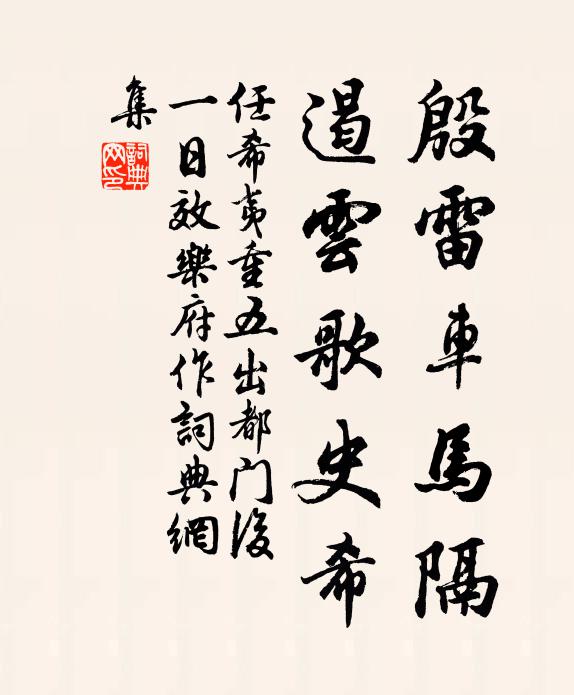 殷雷車馬隔
遏雲歌史希
任希夷重五出都门後
一日效樂府作詞典網
集
詞典網印